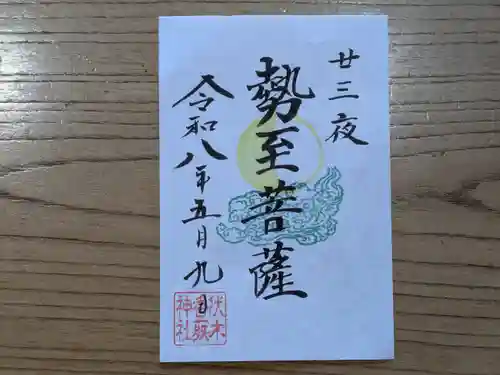 廿三夜
勢至菩薩
令和八年五月九日
伏木香取神社